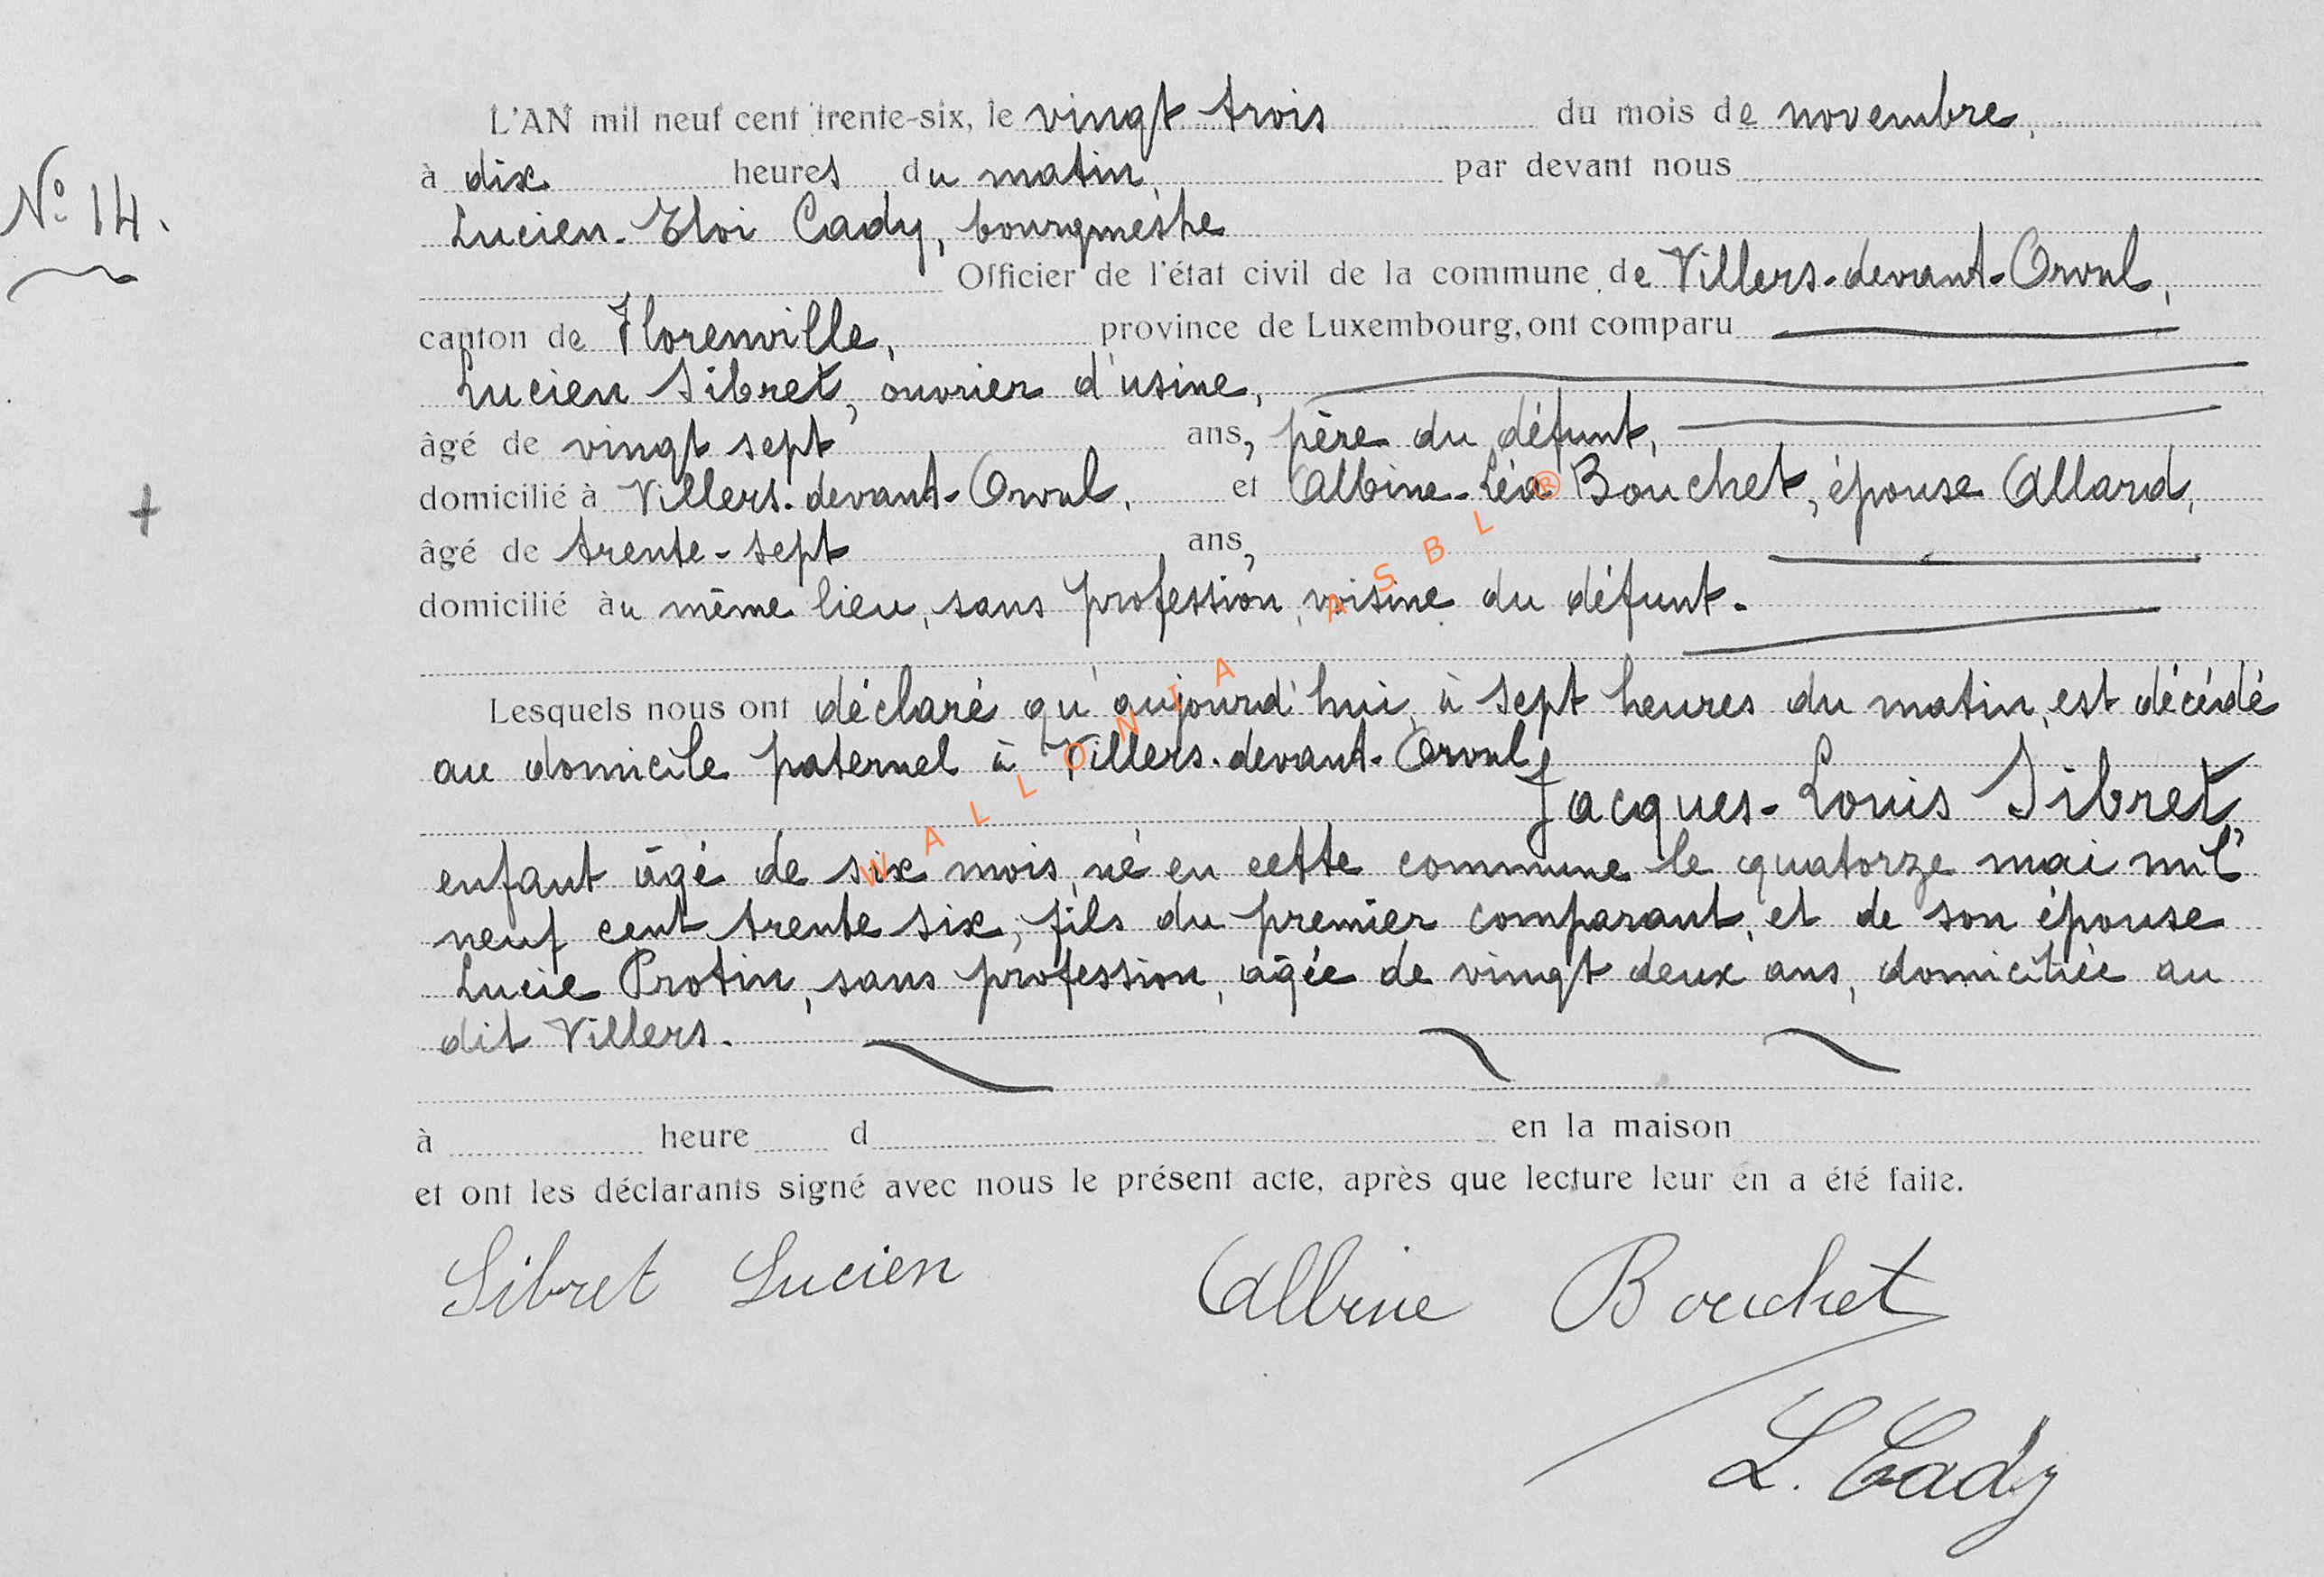 L'AN mil neuf cent trente-six, le vingt trois du mois de novembre,
à dix heures du matin, par devant nous
N° 14.
Lucien-Eloi Cady, bourgmestre
Officier de l'état civil de la commune de Villers-devant-Orval,
canton de Florenville, province de Luxembourg, ont comparu
Lucien Sibret, ouvrier d'usine,
âgé de vingt sept ans, père du défunt,
domicilié à Villers-devant-Orval, et Albine-Léa Bouchet, épouse Allard,
âgé de trente-sept ans,
domicilié au même lieu, sans profession, voisine du défunt.
Lesquels nous ont déclaré qu'aujourd'hui, à sept heures du matin, est décédé
au domicile paternel à Villers-devant-Orval,
Jacques-Louis Sibret,
enfant âgé de six mois, né en cette commune le quatorze mai mil
neuf cent trente six, fils du premier comparant, et de son épouse
Lucie Protin, sans profession, âgée de vingt deux ans, domiciliée au
dit Villers.
à heure d en la maison
et ont les déclarants signé avec nous le présent acte, après que lecture leur en a été faite.
Sibret Lucien Albine Bouchet
L. Cady
WALLONIA ASBL ®